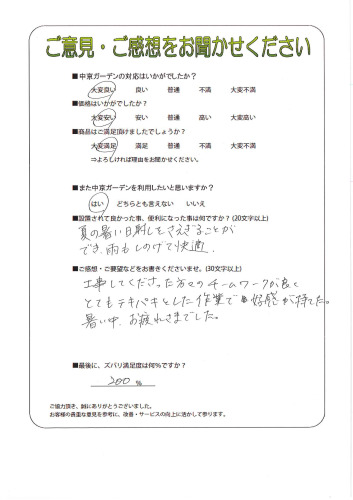 ご意見・ご感想をお聞かせください
■中京ガーデンの対応はいかがでしたか？
大変良い 良い 普通 不満 大変不満
■価格はいかがでしたか？
大変安い 安い 普通 高い 大変高い
■商品はご満足頂けましたでしょうか？
大変満足 満足 普通 不満 大変不満
⇒よろしければ理由をお聞かせください。
■また中京ガーデンを利用したいと思いますか？
はい どちらとも言えない いいえ
■設置されて良かった事、便利になった事は何ですか？(20文字以上)
夏の暑い日射しをさえぎることが
でき、雨もしのげて快適。
■ご感想・ご要望などをお書きくださいませ。(30文字以上)
工事してくださった方々のチームワークが良く
とてもテキパキとした作業で好感が持てた。
暑い中、お疲れさまでした。
■最後に、ズバリ満足度は何％ですか？
200 %
ご協力頂き、誠にありがとうございました。
お客様の貴重な意見を参考に、改善・サービスの向上に活かして参ります。